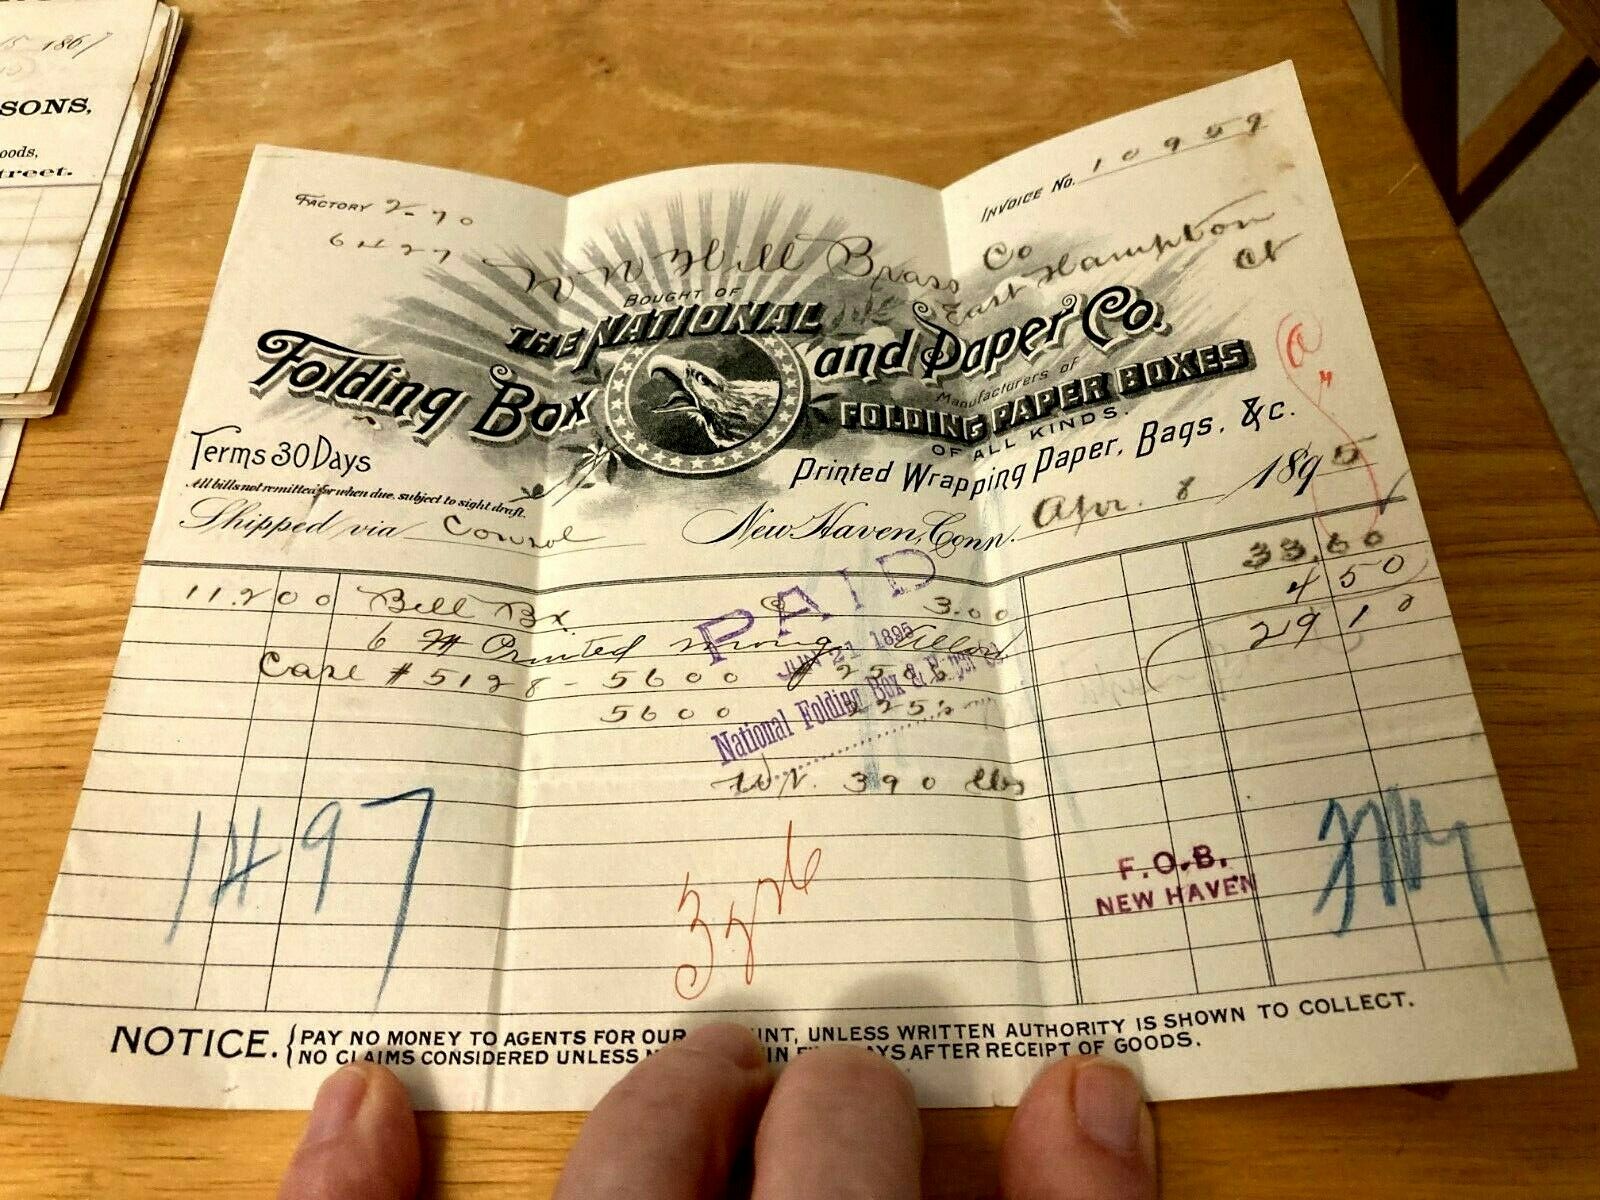 15 1867
SONS,
oods,
treet.
FACTORY 2-70
INVOICE NO. 10959
6427
N N Hill Brass Co
East Hampton
Ct
BOUGHT OF
THE NATIONAL
Folding Box and Paper Co.
Manufacturers of
FOLDING PAPER BOXES
OF ALL KINDS.
Printed Wrapping Paper, Bags, &c.
Terms 30 Days
All bills not remitted for when due, subject to sight draft.
Shipped via
New Haven, Conn. Apr. 8 1895
11.200 Bell Bx @ 3.00 33.60
6 # Printed 450
Case #5128 - 5600 29 10
5600
PAID
JUN 21 1895
National Folding Box & Paper Co.
Wt. 390 lbs
1497
F.O.B.
NEW HAVEN
NOTICE. PAY NO MONEY TO AGENTS FOR OUR UNLESS WRITTEN AUTHORITY IS SHOWN TO COLLECT.
NO CLAIMS CONSIDERED UNLESS DAYS AFTER RECEIPT OF GOODS.